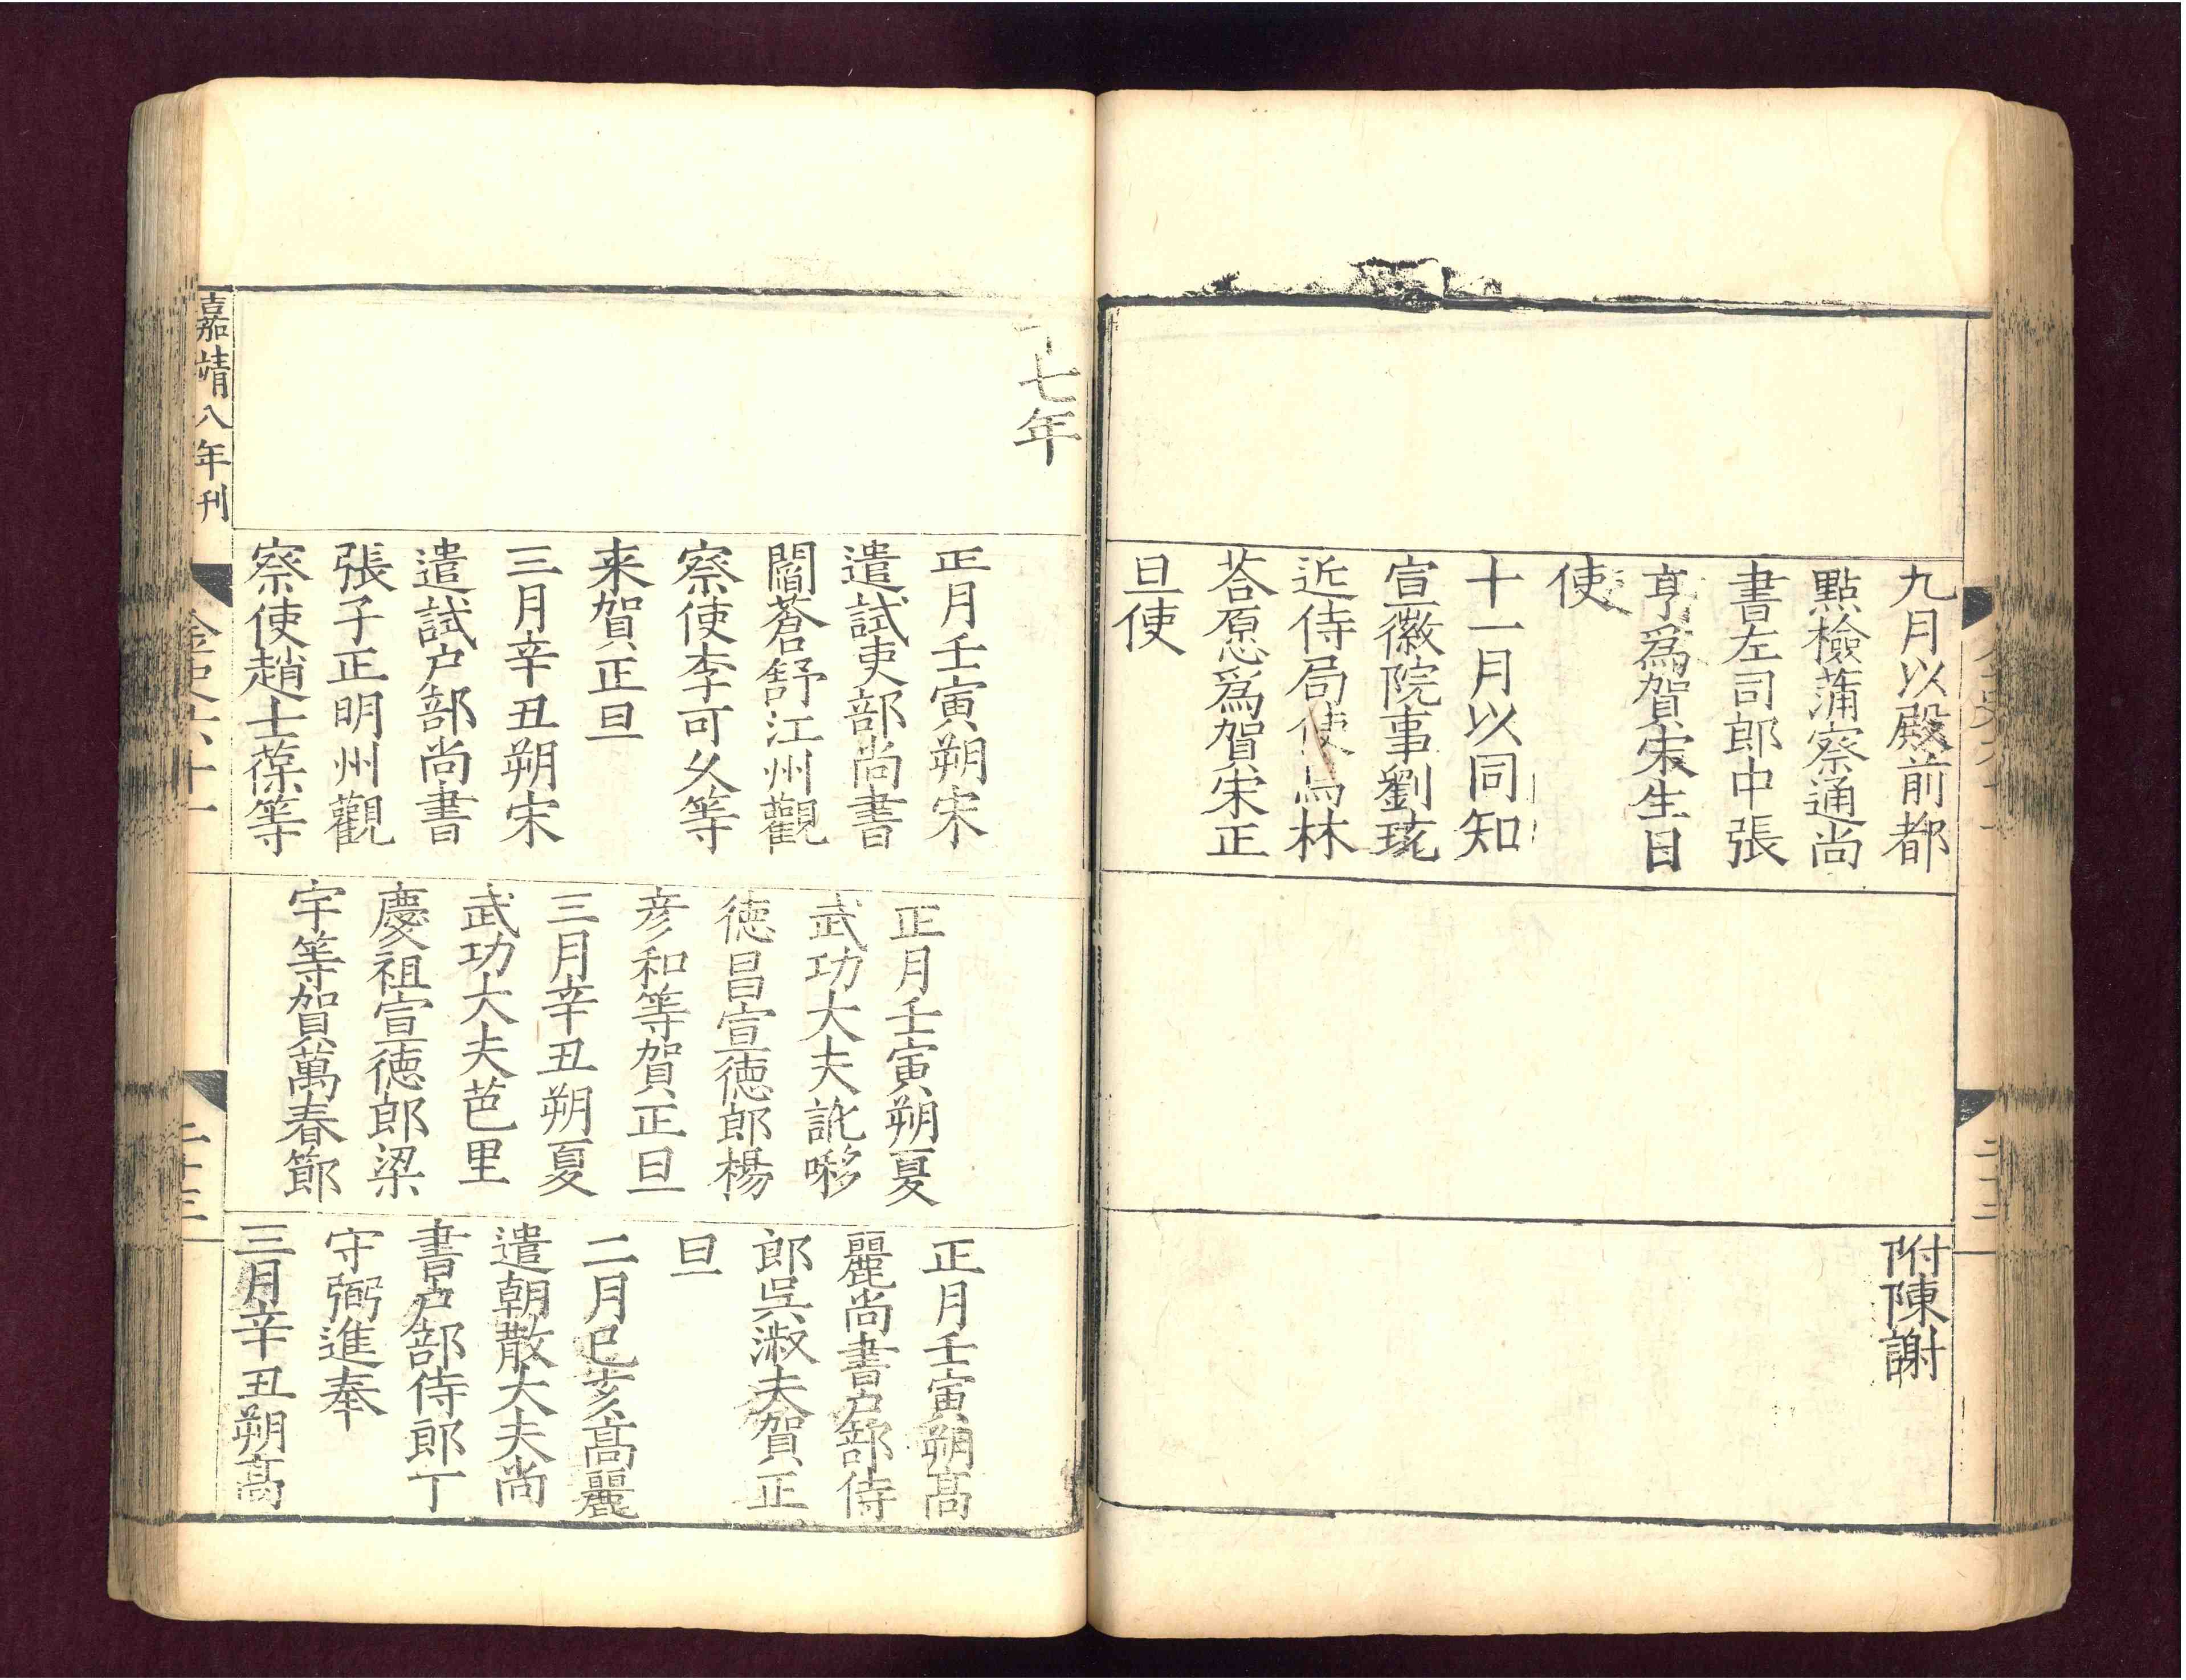 九月以殿前都
點檢蒲察通尚
書左司郎中張
亨爲賀宋生日
使
十一月以同知
宣徽院事劉珫
近侍局使烏林
荅愿爲賀宋正
旦使
附陳謝
十七年
正月壬寅朔宋
遣試吏部尚書
閻蒼舒江州觀
察使李可久等
来賀正旦
三月辛丑朔宋
遣試户部尚書
張子正明州觀
察使趙士葆等
正月壬寅朔夏
武功大夫訛啰
德昌宣德郎楊
彦和等賀正旦
三月辛丑朔夏
武功大夫芭里
慶祖宣德郎梁
宇等賀萬春節
正月壬寅朔高
麗尚書户部侍
郎吳淑夫賀正
旦
二月己亥高麗
遣朝散大夫尚
書户部侍郎丁
守弼進奉
三月辛丑朔高
嘉靖八年刊
金史六十一
二十三